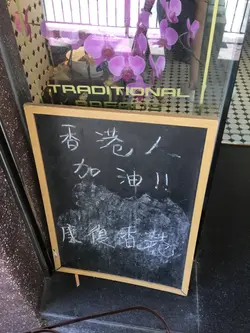 TRADITIONAL
香港人
加油!!
康復香港